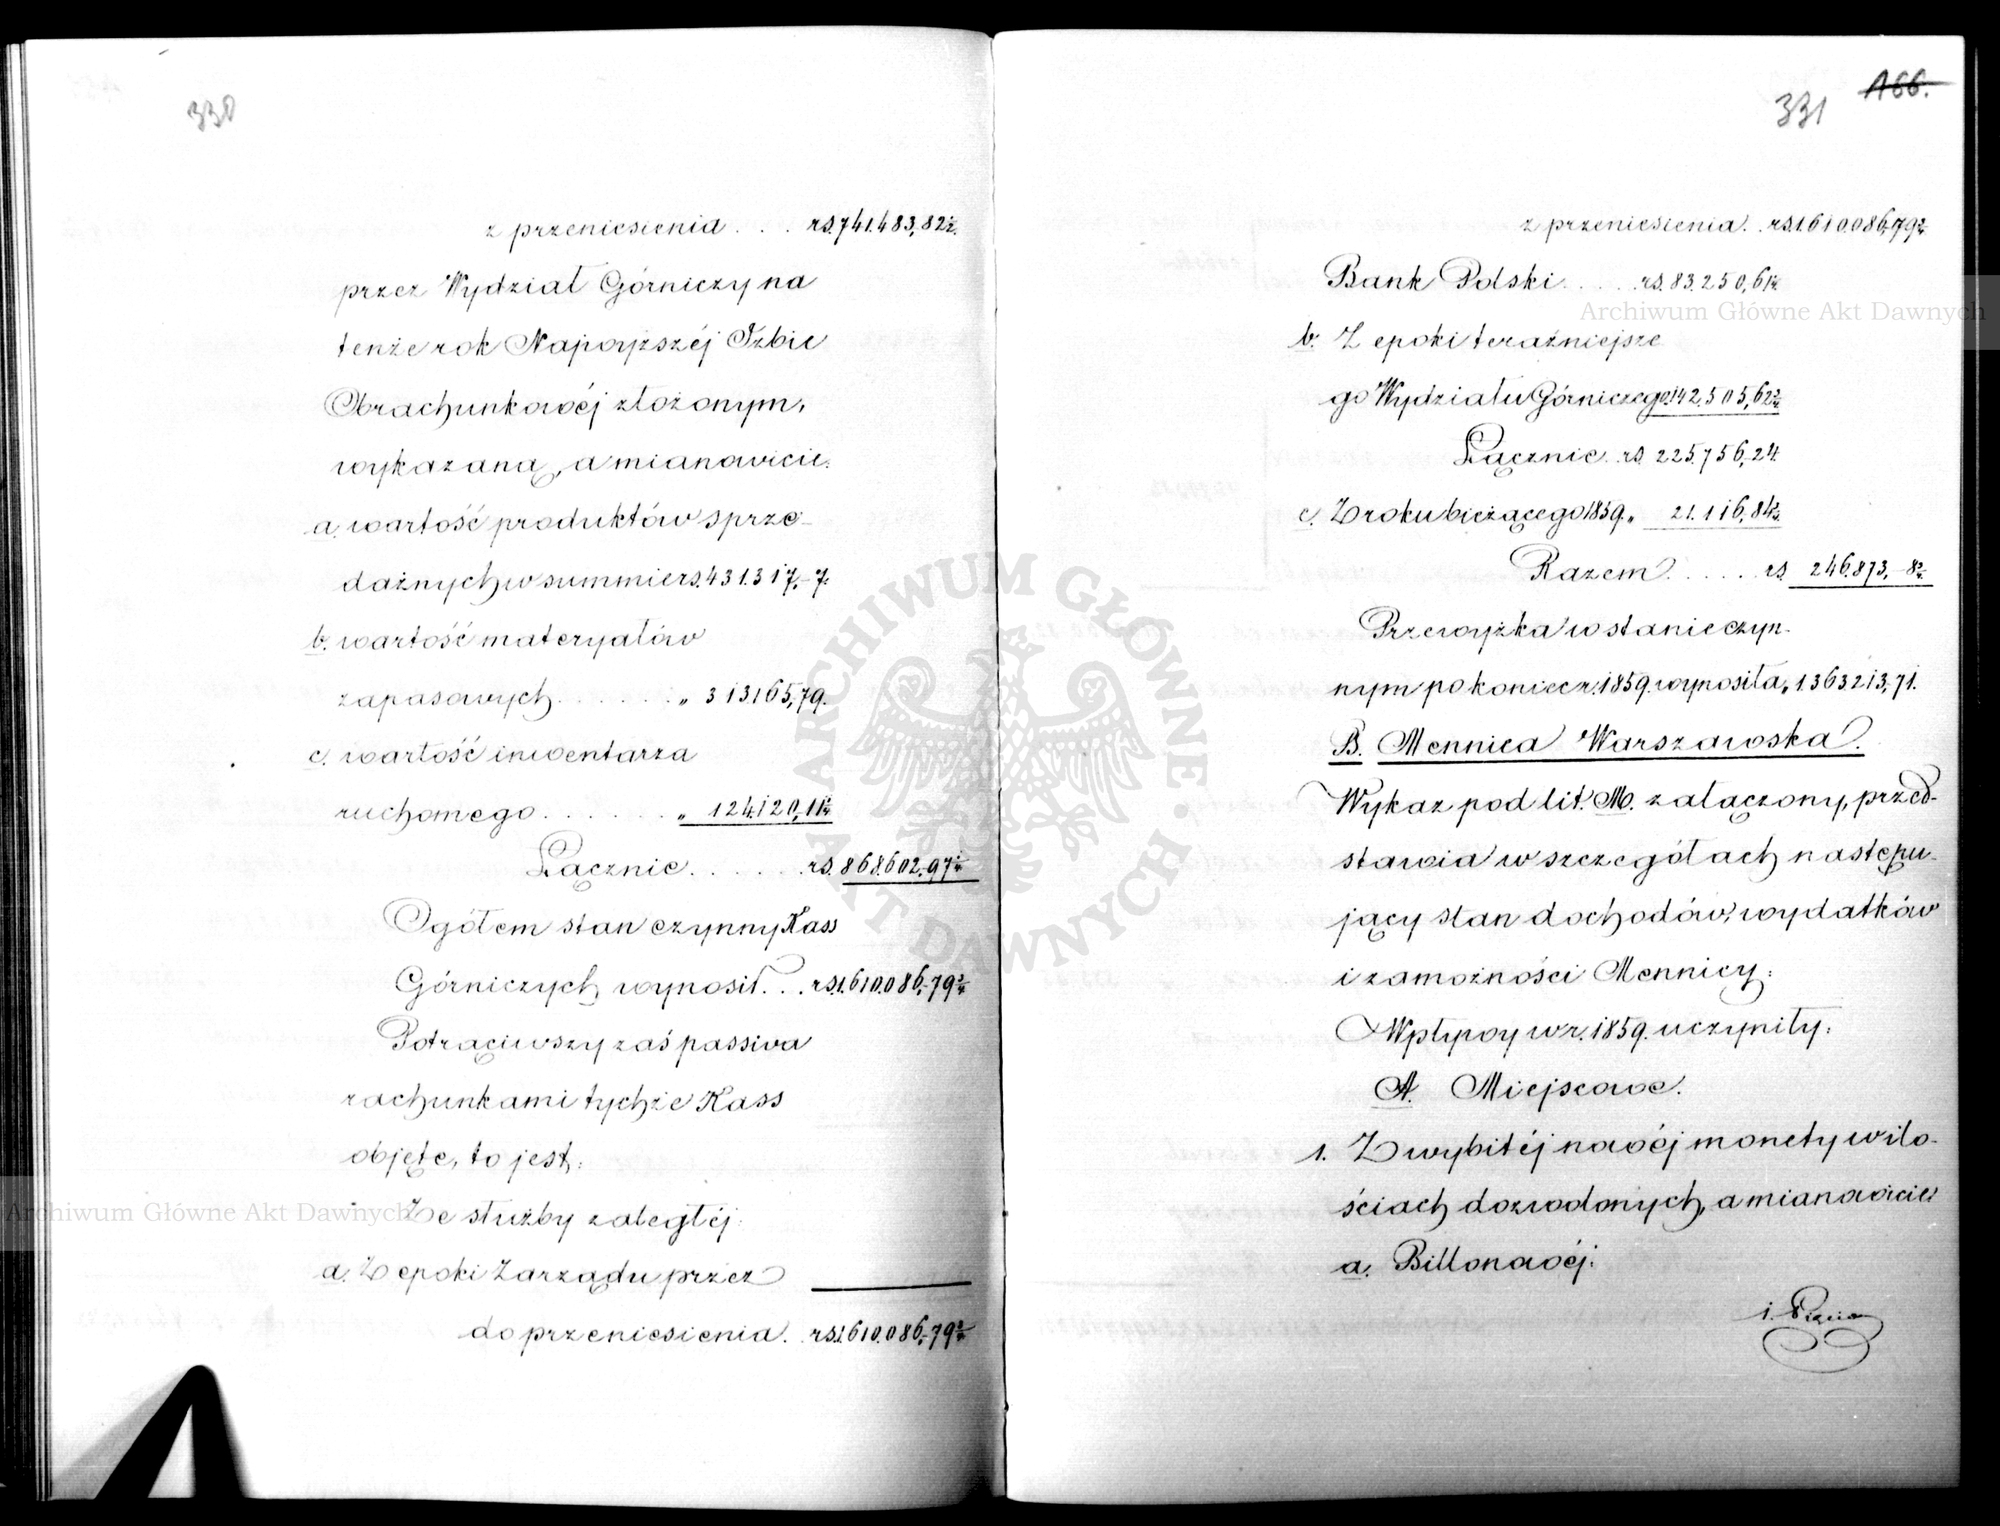 330
z przeniesienia . . . rs. 741.483, 82½.
przez Wydział Górniczy na
tenże rok Najwyższéj Izbie
Obrachunkowéj złożonym,
wykazaną, a mianowicie:
a. wartość produktów sprze-
dażnych w summie rs. 431.317,-7.
b. wartość materyałów
zapasowych . . . . . . „ 313.165,79.
c. wartość inwentarza
ruchomego . . . . . . „ 124.120,11½
Łącznie . . . . . rs. 868.602,-97½
Ogółem stan czynny Kass
Górniczych wynosił . . . rs. 1.610.086,-79¾
Potrąciwszy zaś passiva
rachunkami tychże Kass
objęte, to jest:
Ze służby zaległéj:
a. Z epoki Zarządu przez
do przeniesienia. rs. 1.610.086,-79¾
166.
331
z przeniesienia. rs. 1.610.086,-79¾
Bank Polski . . . . . rs. 83.250,61¼
b. Z epoki teraźniejsze
go Wydziału Górniczego „ 142.505,62¾
Łącznie rs. 225.756,-24.
c. Z roku bieżącego 1859. „ 21.116,84¾
Razem . . . . . rs. 246.873,-8¾
Przewyżka w stanie czyn-
nym po koniec r. 1859. wynosiła „ 1.363.213,71.
B. Mennica Warszawska.
Wykaz pod lit. M. załączony, przed-
stawia w szczegółach następu-
jący stan dochodów, wydatków
i zamożności Mennicy:
Wpływy w r. 1859. uczyniły:
A. Miejscowe.
1. Z wybitéj nowéj monety w ilo-
ściach dozwolonych, a mianowicie:
a. Billonowéj:
Archiwum Główne Akt Dawnych
Archiwum Główne Akt Dawnych
ARCHIWUM GŁÓWNE AKT DAWNYCH